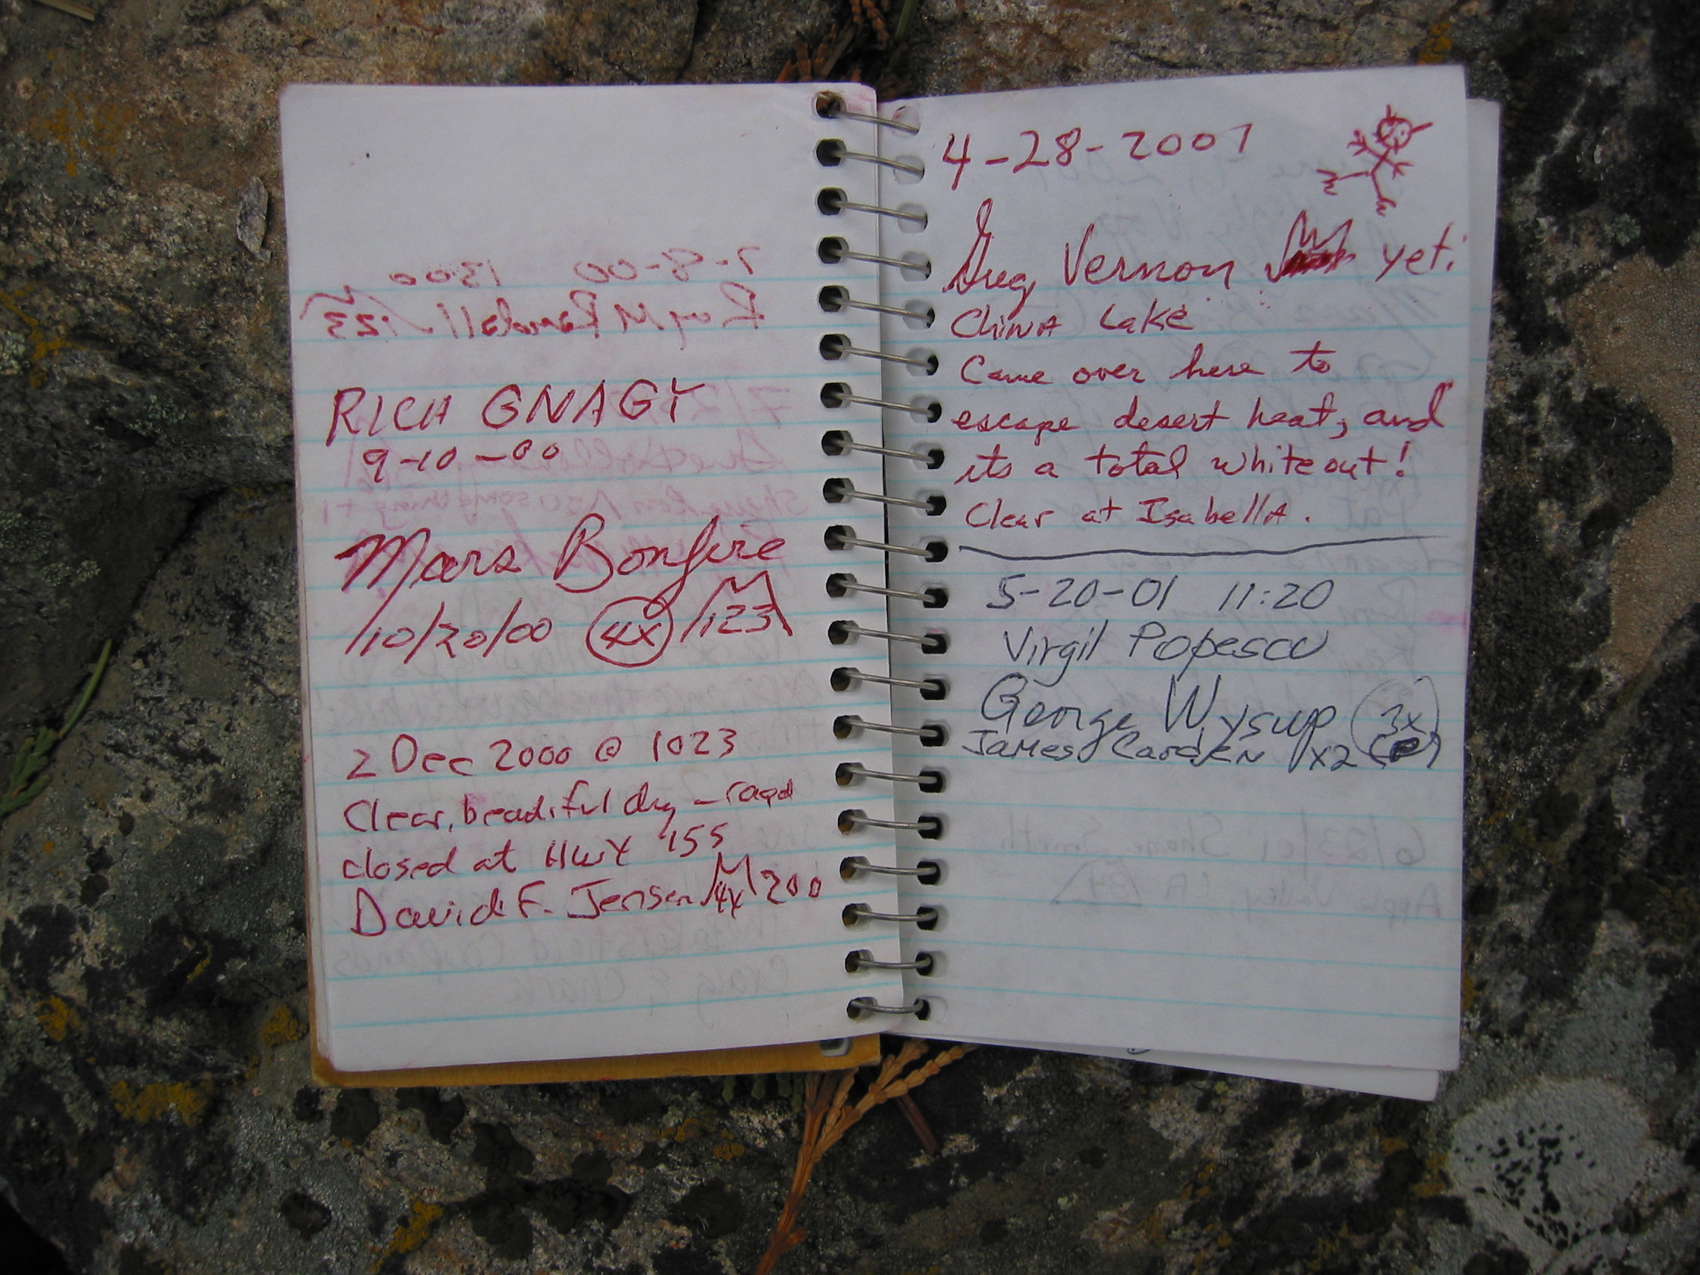 RICH GNAGY
9-10-00
Mars Bonfire
10/20/00 4x 123
2 Dec 2000 @ 1023
Clear, beautiful day - road
closed at HWY 155
David F. Jensen 4x 200
4-28-2001
Greg Vernon yet!
CHINA Lake
Came over here to
escape desert heat, and
its a total white out!
Clear at IsabellA.
5-20-01 11:20
Virgil Popescu
George Wysup 3x
James CardEN x2